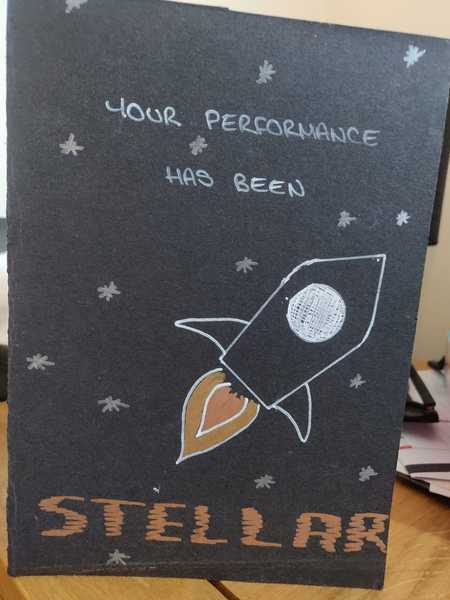 YOUR PERFORMANCE
HAS BEEN
STELLAR